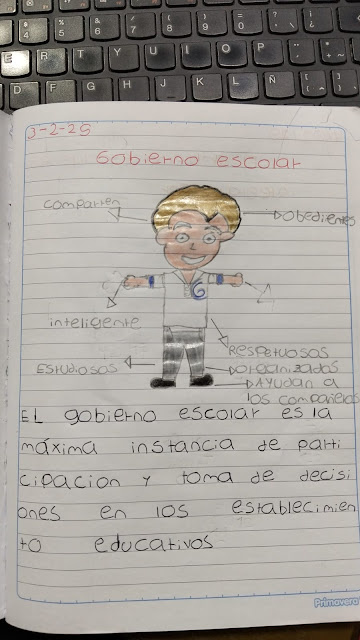 3-2-29
Gobierno escolar
comparten
obedientes
inteligente
Respetuosos
ESTUDIOSOS
organizados
Ayudan a
los compañeros
EL gobierno escolar es la
máxima instancia de parti
cipacion y toma de decisi
ones en los establecimien
to educativos
Primavera